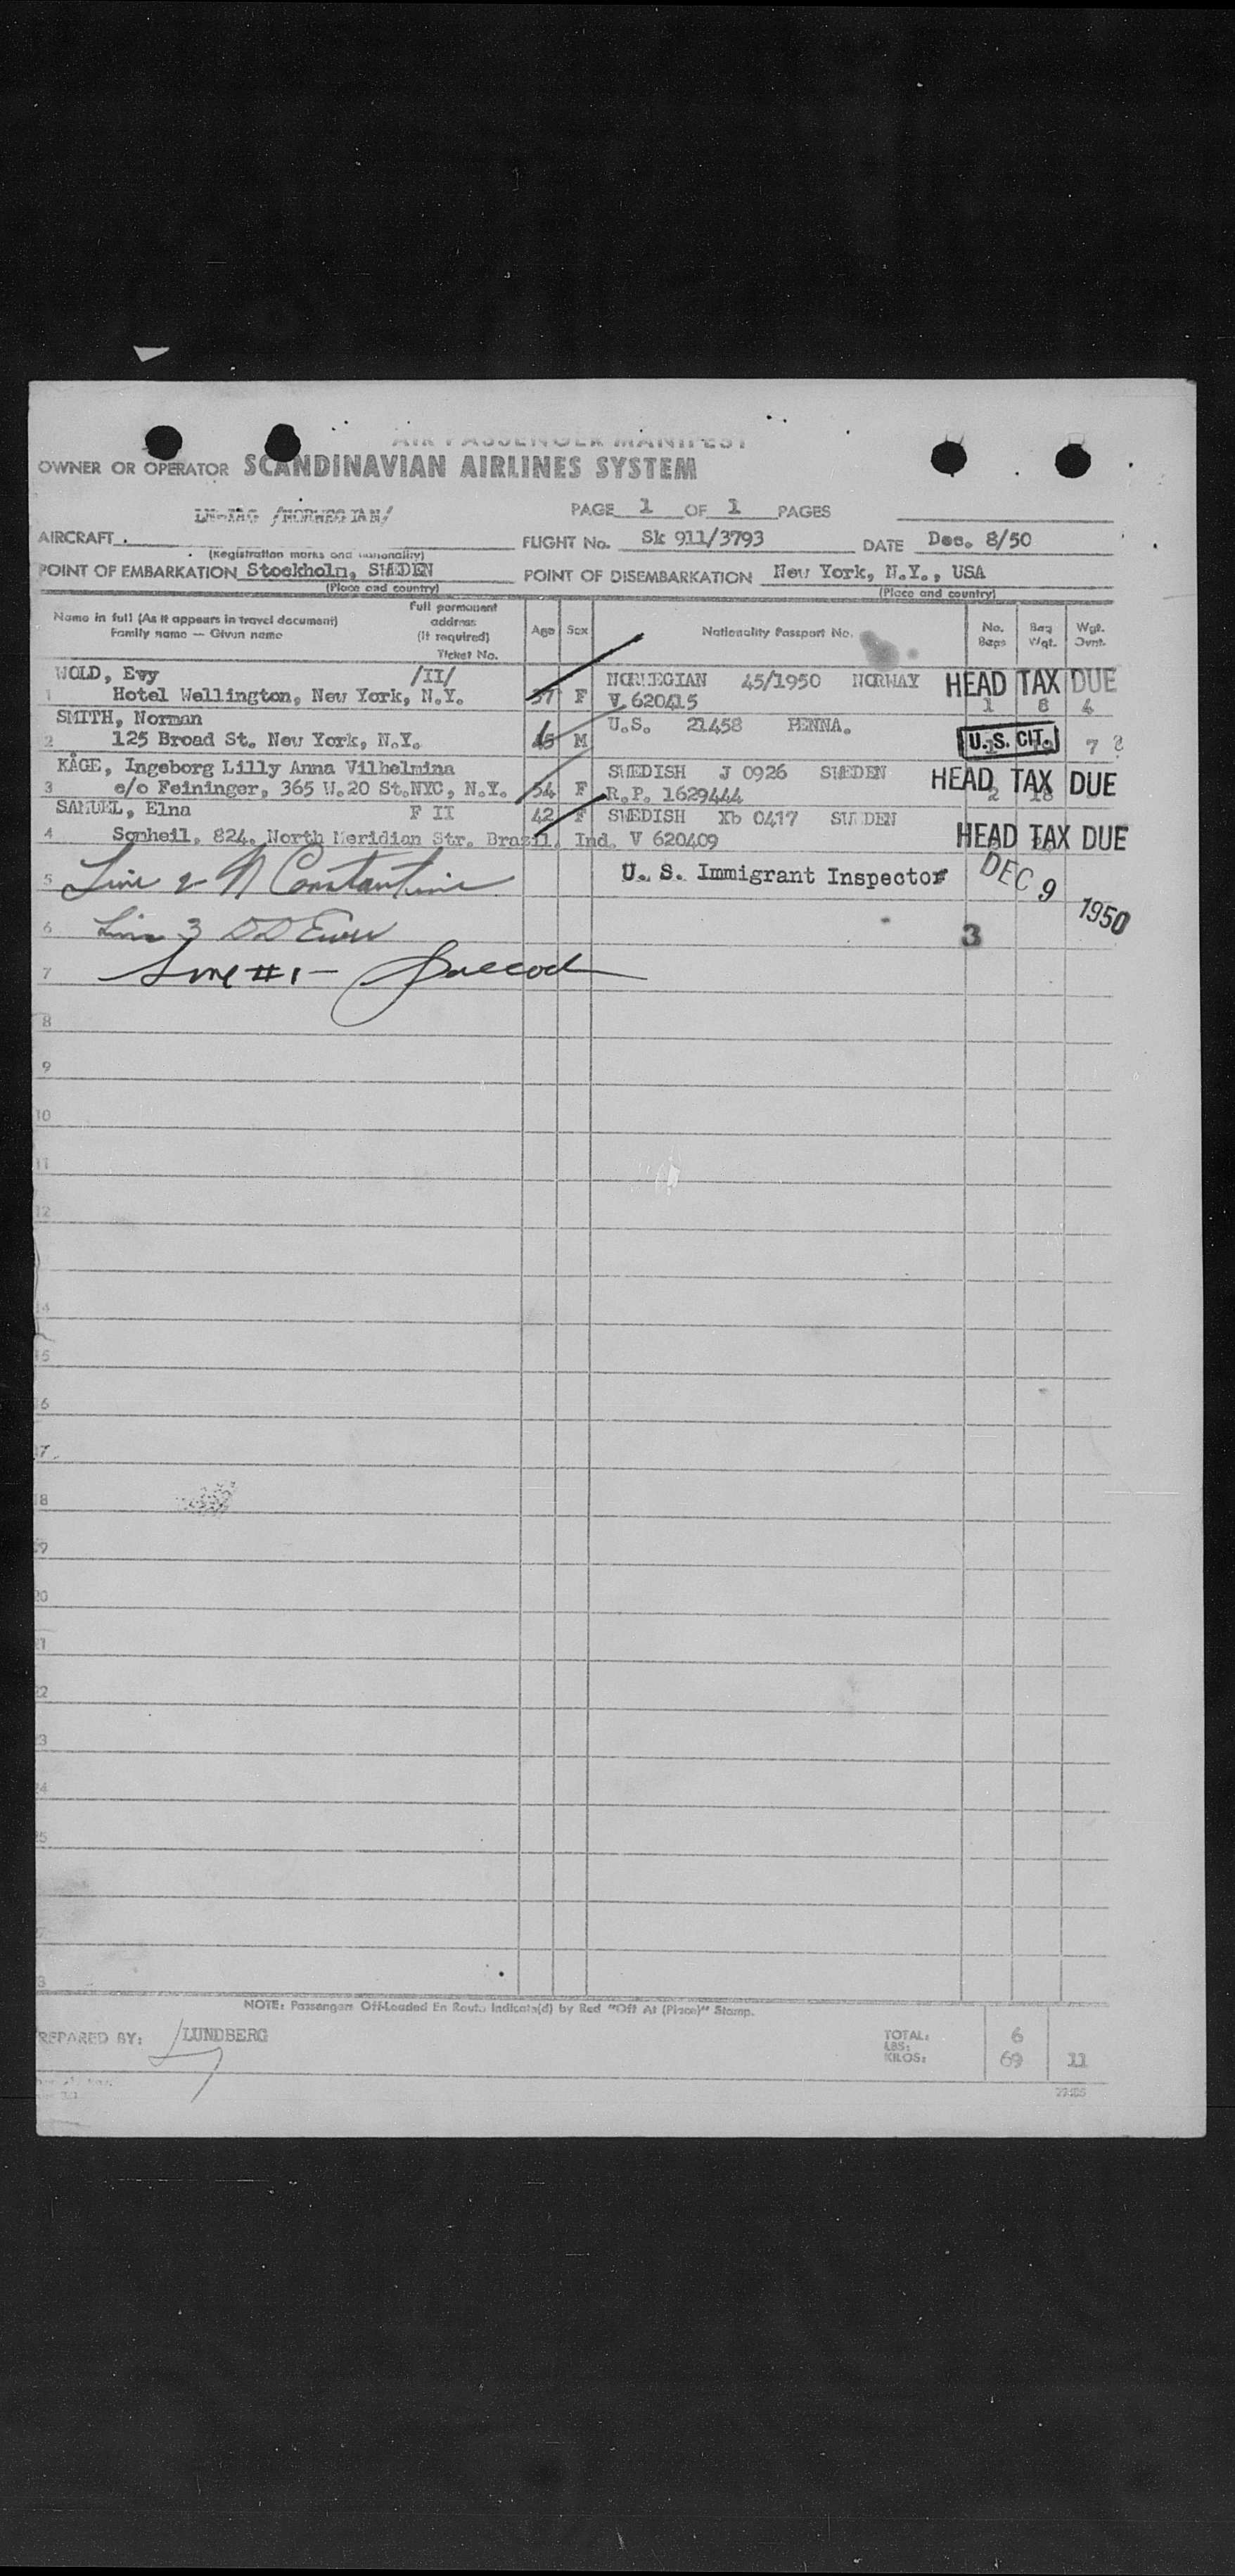 AIR PASSENGER MANIFEST
OWNER OR OPERATOR SCANDINAVIAN AIRLINES SYSTEM
/NORWEGIAN/ PAGE 1 OF 1 PAGES
AIRCRAFT. FLIGHT No. Sk 911/3793 DATE Dec. 8/50
(Registration marks and nationality)
POINT OF EMBARKATION Stockholm, SWEDEN POINT OF DISEMBARKATION New York, N.Y., USA
(Place and country) (Place and country)
Name in full (As it appears in travel document) Full permanent address (If required) Age Sex Nationality Passport No. No. Bags Bag Wgt. Wgt. Ovrt.
Family name — Given name Ticket No.
WOLD, Evy /II/ NORWEGIAN 45/1950 NORWAY HEAD TAX DUE
1 Hotel Wellington, New York, N.Y. 37 F V 620415 1 8 4
SMITH, Norman U.S. 21458 PENNA.
2 125 Broad St. New York, N.Y. 45 M U.S. CIT. 7
KÅGE, Ingeborg Lilly Anna Vilhelmina SWEDISH J 0926 SWEDEN HEAD TAX DUE
3 c/o Feininger, 365 W.20 St.NYC, N.Y. 54 F R.P. 1629444 2 18
SAMUEL, Elna F II 42 F SWEDISH Xb 0417 SWEDEN
4 Sonheil, 824, North Meridian Str. Brazil, Ind. V 620409 HEAD TAX DUE
5 Line 2 N Constantine U. S. Immigrant Inspector DEC 9 1950
6 Line 3 3
7 Line #1-
8
9
10
11
12
14
15
16
17
18
19
20
21
22
23
24
25
NOTE: Passengers Off-Loaded En Route Indicate(d) by Red "Off At (Place)" Stamp.
PREPARED BY: LUNDBERG TOTAL: 6
LBS:
KILOS: 69 11